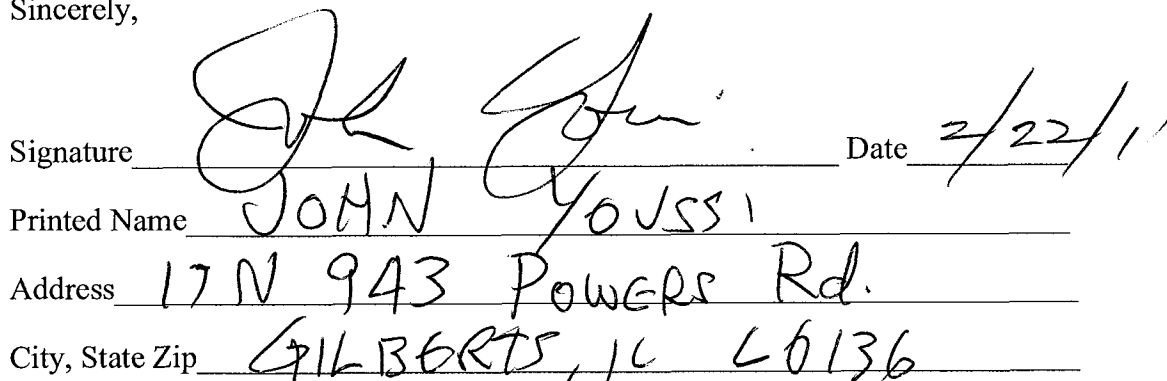 Sincerely,
Signature John Youssi Date 2/22/11
Printed Name JOHN YOUSSI
Address 17N 943 POWERS Rd.
City, State Zip GILBERTS, IL 60136